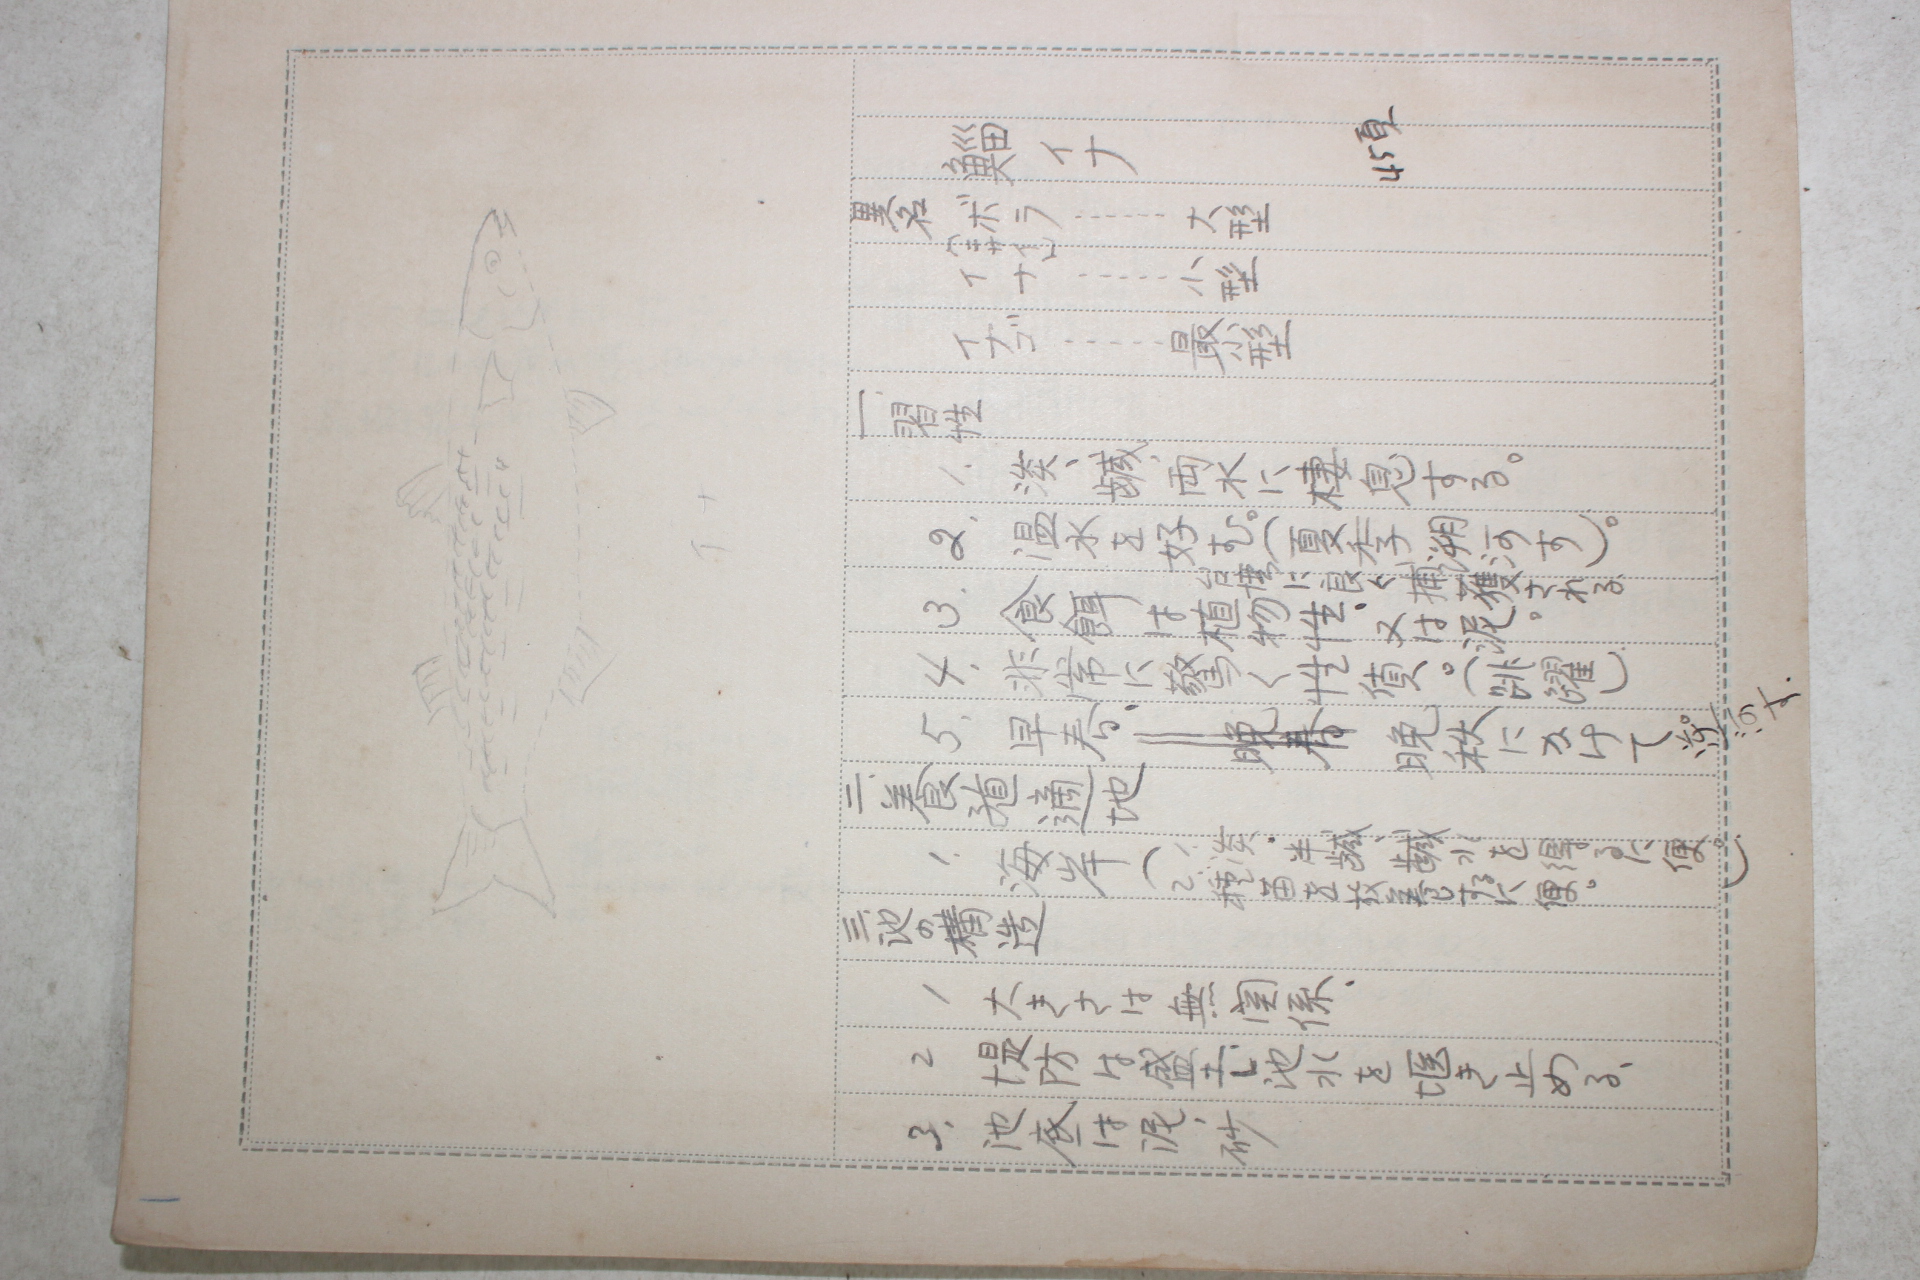 鯔 イナ
45頁
異名 ボラ……大型
イナ……小型
イナゴ……最小型
一、習性
1. 淡、鹹、両水に棲息する。
2. 温水を好む。(夏季溯河す)。
に良く捕獲される
3. 食餌は植物性、又は泥。
4. 非常に驚く性質。(跳躍)
5. 早春、晩春 晩秋にかけて溯河す。
二、養殖適地
1. 海岸(1. 淡、半鹹、鹹水を得るに便。)
2. 種苗を放養するに便。
三 池の構造
1 大きさは無関係、
2 堤防は盛土し池水を堰き止める、
3. 池底は泥、砂
イナ